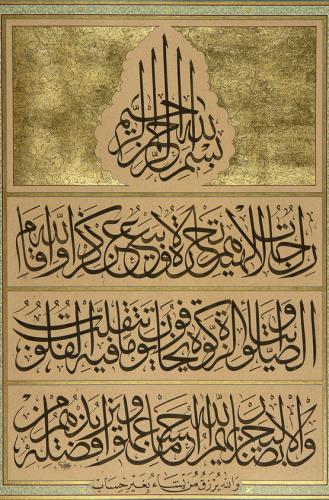 بسم الله الرحمن الرحيم
رجال لا تلهيهم تجارة ولا بيع عن ذكر الله واقام
الصلوة وايتاء الزكوة يخافون يوما تتقلب فيه القلوب
والابصار ليجزيهم الله احسن ما عملوا ويزيدهم من فضله
والله يرزق من يشاء بغير حساب